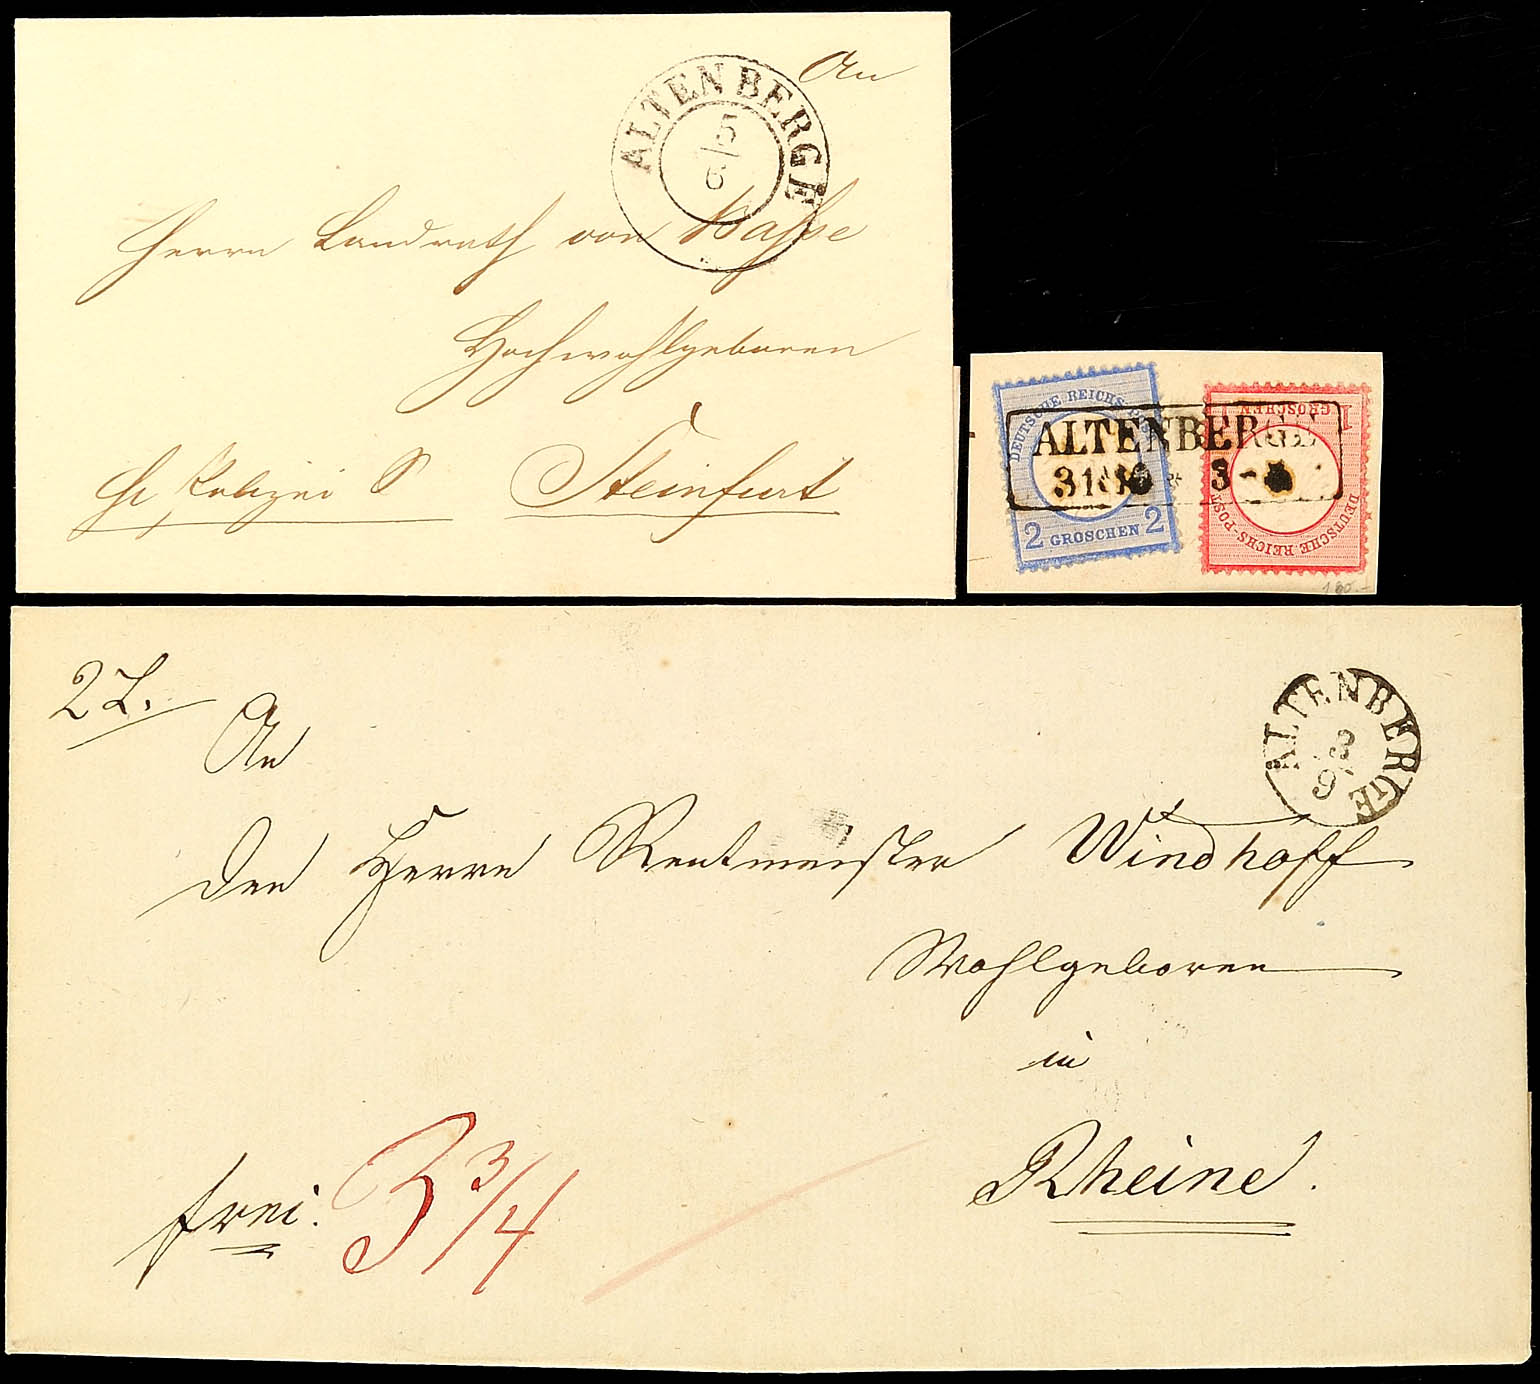 An
ALTENBERGE
5/6
Herrn Landrath von Basse
Hochwohlgeboren
Polizei S
Steinfurt
DEUTSCHE REICHS-POST
2 GROSCHEN 2
1 GROSCHEN 1
DEUTSCHE REICHS-POST
ALTENBERGE
31 10 * 3-
180.-
2 L.
An
ALTENBERGE
3/9
den Herrn Rentmeister Windhoff
Wohlgeboren
in
Rheine.
frei. 3 3/4